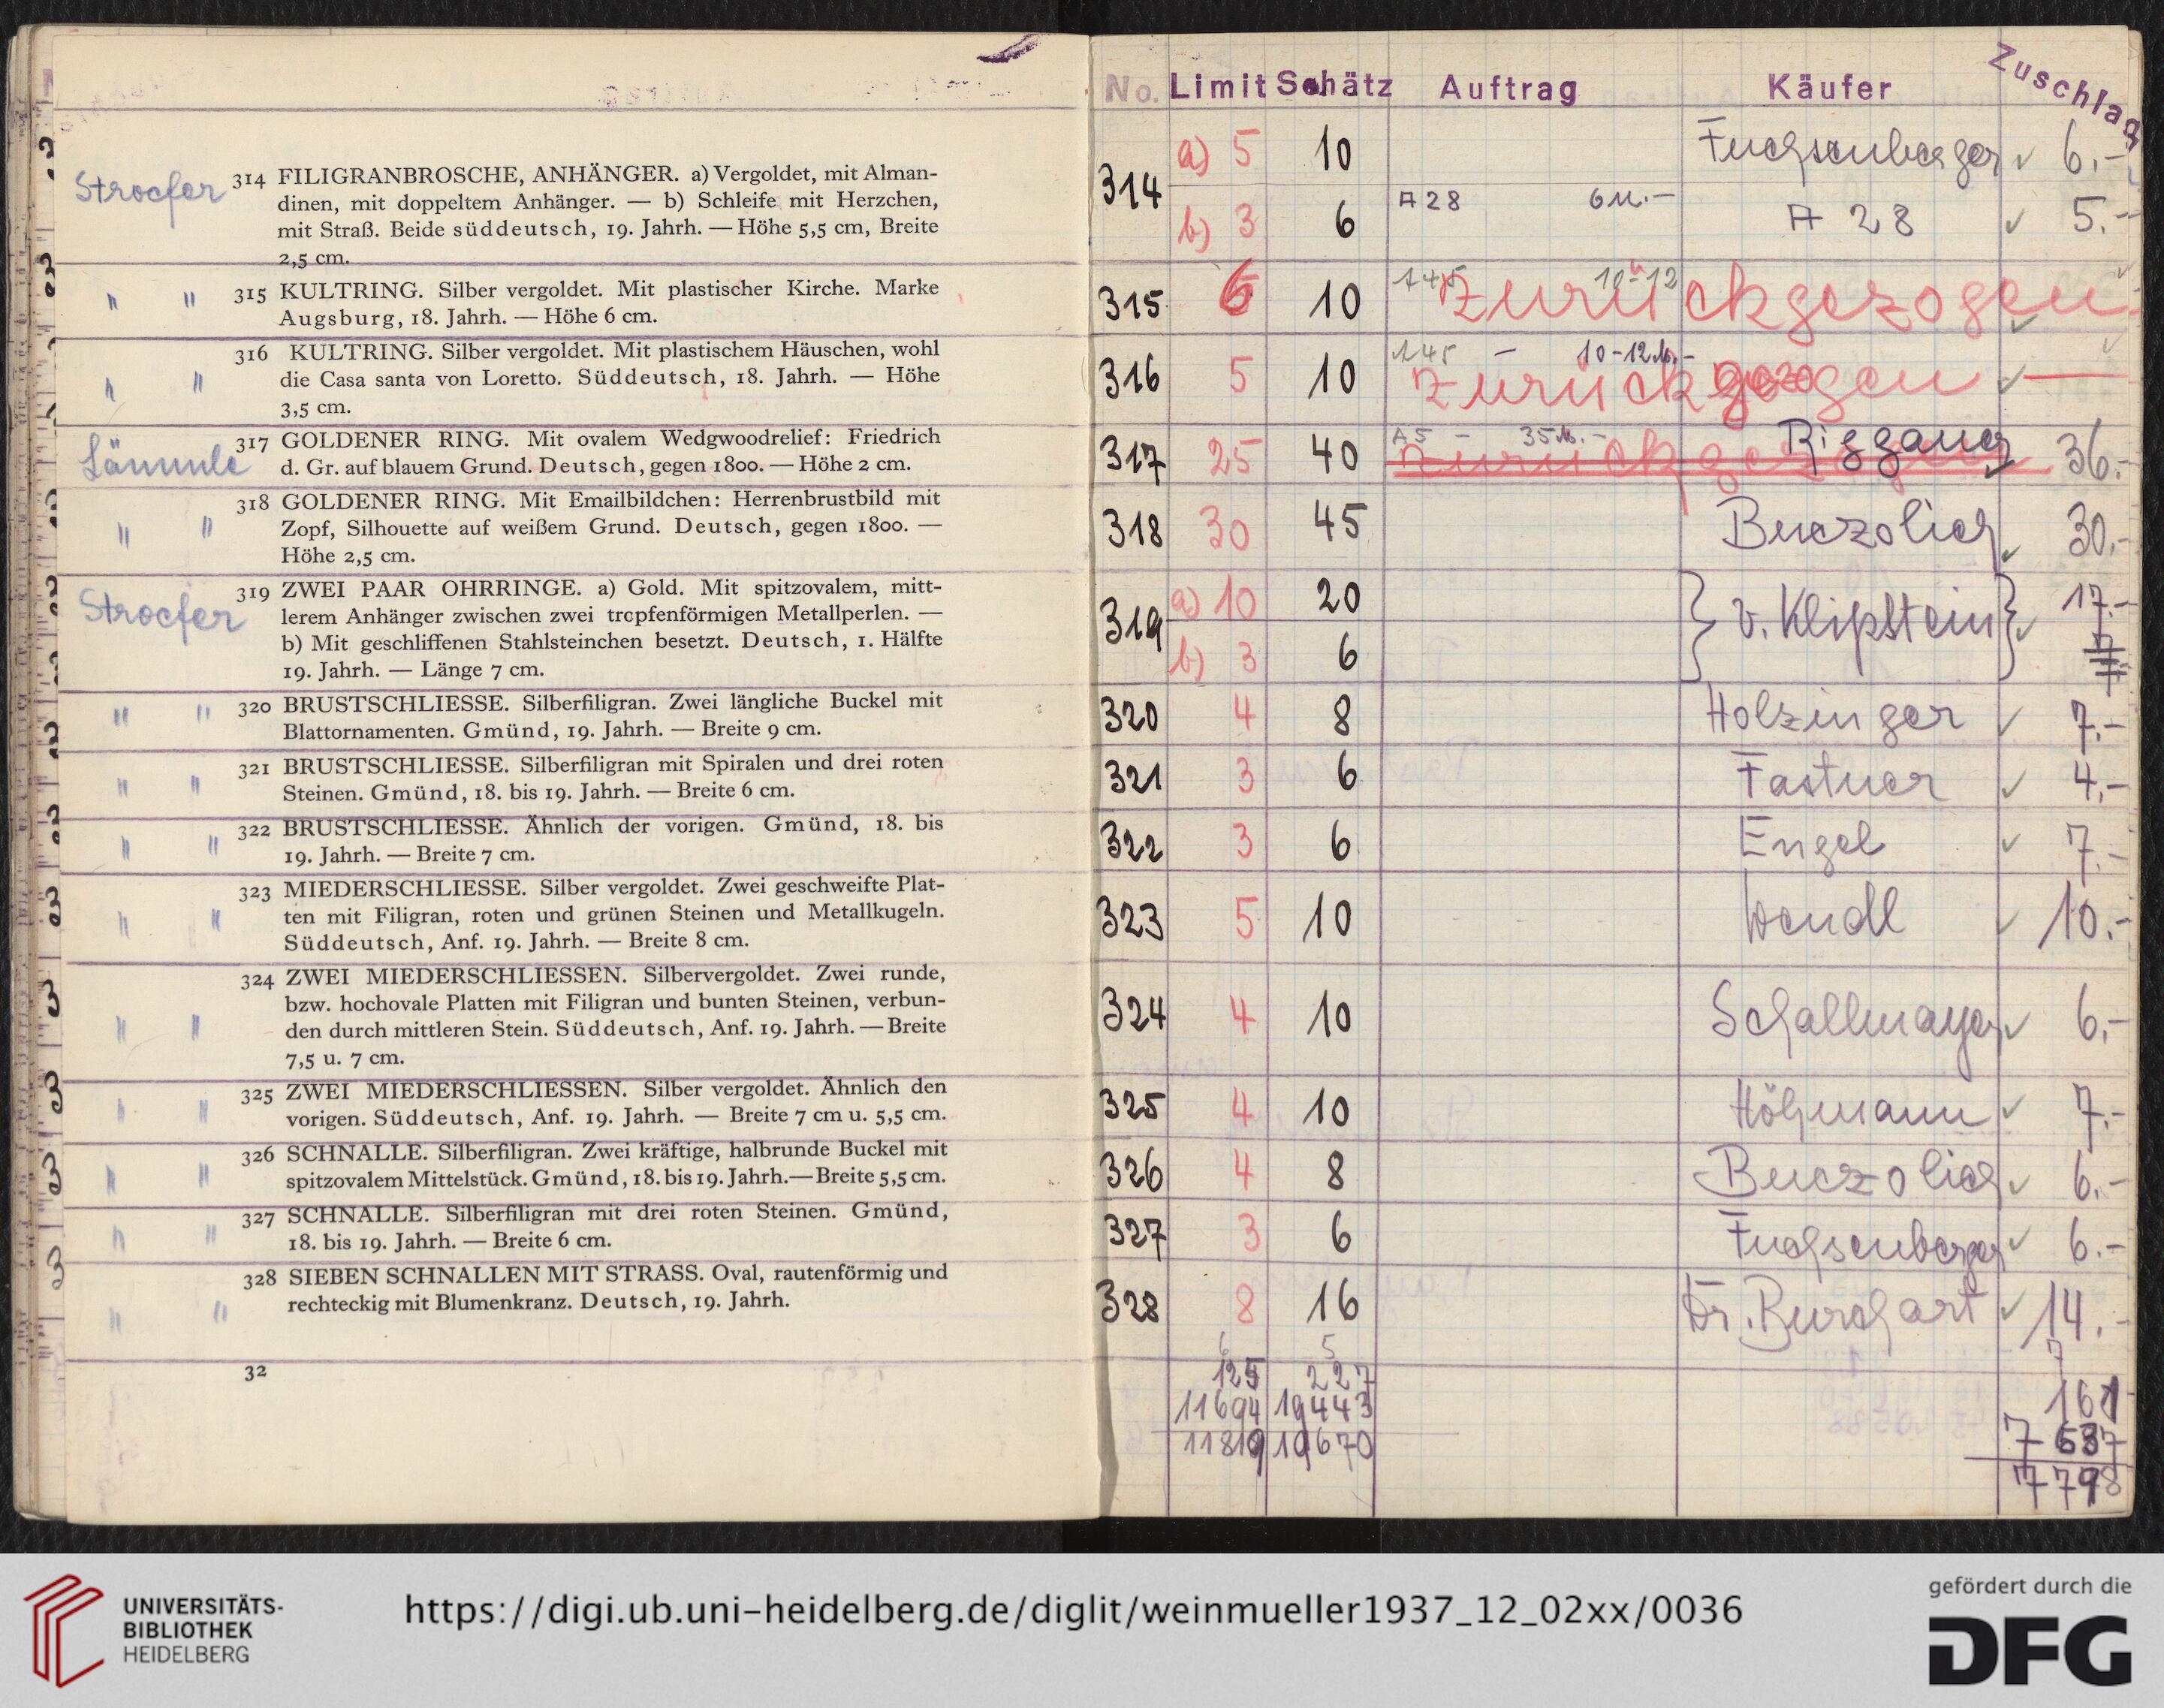 Strocfer 314 FILIGRANBROSCHE, ANHÄNGER. a) Vergoldet, mit Alman-
dinen, mit doppeltem Anhänger. — b) Schleife mit Herzchen,
mit Straß. Beide süddeutsch, 19. Jahrh. — Höhe 5,5 cm, Breite
2,5 cm.
" " 315 KULTRING. Silber vergoldet. Mit plastischer Kirche. Marke
Augsburg, 18. Jahrh. — Höhe 6 cm.
316 KULTRING. Silber vergoldet. Mit plastischem Häuschen, wohl
" " die Casa santa von Loretto. Süddeutsch, 18. Jahrh. — Höhe
3,5 cm.
Lämmle 317 GOLDENER RING. Mit ovalem Wedgwoodrelief: Friedrich
d. Gr. auf blauem Grund. Deutsch, gegen 1800. — Höhe 2 cm.
318 GOLDENER RING. Mit Emailbildchen: Herrenbrustbild mit
" " Zopf, Silhouette auf weißem Grund. Deutsch, gegen 1800. —
Höhe 2,5 cm.
Strocfer 319 ZWEI PAAR OHRRINGE. a) Gold. Mit spitzovalem, mitt-
lerem Anhänger zwischen zwei tropfenförmigen Metallperlen. —
b) Mit geschliffenen Stahlsteinchen besetzt. Deutsch, 1. Hälfte
19. Jahrh. — Länge 7 cm.
" " 320 BRUSTSCHLIESSE. Silberfiligran. Zwei längliche Buckel mit
Blattornamenten. Gmünd, 19. Jahrh. — Breite 9 cm.
" " 321 BRUSTSCHLIESSE. Silberfiligran mit Spiralen und drei roten
Steinen. Gmünd, 18. bis 19. Jahrh. — Breite 6 cm.
" " 322 BRUSTSCHLIESSE. Ähnlich der vorigen. Gmünd, 18. bis
19. Jahrh. — Breite 7 cm.
323 MIEDERSCHLIESSE. Silber vergoldet. Zwei geschweifte Plat-
" " ten mit Filigran, roten und grünen Steinen und Metallkugeln.
Süddeutsch, Anf. 19. Jahrh. — Breite 8 cm.
324 ZWEI MIEDERSCHLIESSEN. Silbervergoldet. Zwei runde,
bzw. hochovale Platten mit Filigran und bunten Steinen, verbun-
" " den durch mittleren Stein. Süddeutsch, Anf. 19. Jahrh. — Breite
7,5 u. 7 cm.
" " 325 ZWEI MIEDERSCHLIESSEN. Silber vergoldet. Ähnlich den
vorigen. Süddeutsch, Anf. 19. Jahrh. — Breite 7 cm u. 5,5 cm.
" " 326 SCHNALLE. Silberfiligran. Zwei kräftige, halbrunde Buckel mit
spitzovalem Mittelstück. Gmünd, 18. bis 19. Jahrh. — Breite 5,5 cm.
" " 327 SCHNALLE. Silberfiligran mit drei roten Steinen. Gmünd,
18. bis 19. Jahrh. — Breite 6 cm.
" " 328 SIEBEN SCHNALLEN MIT STRASS. Oval, rautenförmig und
rechteckig mit Blumenkranz. Deutsch, 19. Jahrh.
32
No. Limit Schätz Auftrag Käufer Zuschlag
314 a) 5 10 Fuchsenberger ✓ 6.-
b) 3 6 A 28 6 M.- A 28 ✓ 5.-
315 6 10 10-12 Zurückgezogen
316 5 10 145 - 10-12 M.- Zurückgezogen ✓ —
317 25 40 A5 - 35 M.- Zurückgezogen Riggauer 36.-
318 30 45 Buczolich ✓ 30.-
319 a) 10 20 } v. Klipstein } ✓ 17.-
b) 3 6
320 4 8 Holzinger ✓ 7.-
321 3 6 Fastner ✓ 4.-
322 3 6 Engel ✓ 7.-
323 5 10 Wendl ✓ 10.-
324 4 10 Schallmayer ✓ 6.-
325 4 10 Höhmann ✓ 7.-
326 4 8 Buczolich ✓ 6.-
327 3 6 Fuchsenberger ✓ 6.-
328 8 16 Dr. Burchart ✓ 14.-
6 5 7
125 227 161
11694 19443 7637
11819 19670 7798
UNIVERSITÄTS-
BIBLIOTHEK
HEIDELBERG
https://digi.ub.uni-heidelberg.de/diglit/weinmueller1937_12_02xx/0036
gefördert durch die
DFG